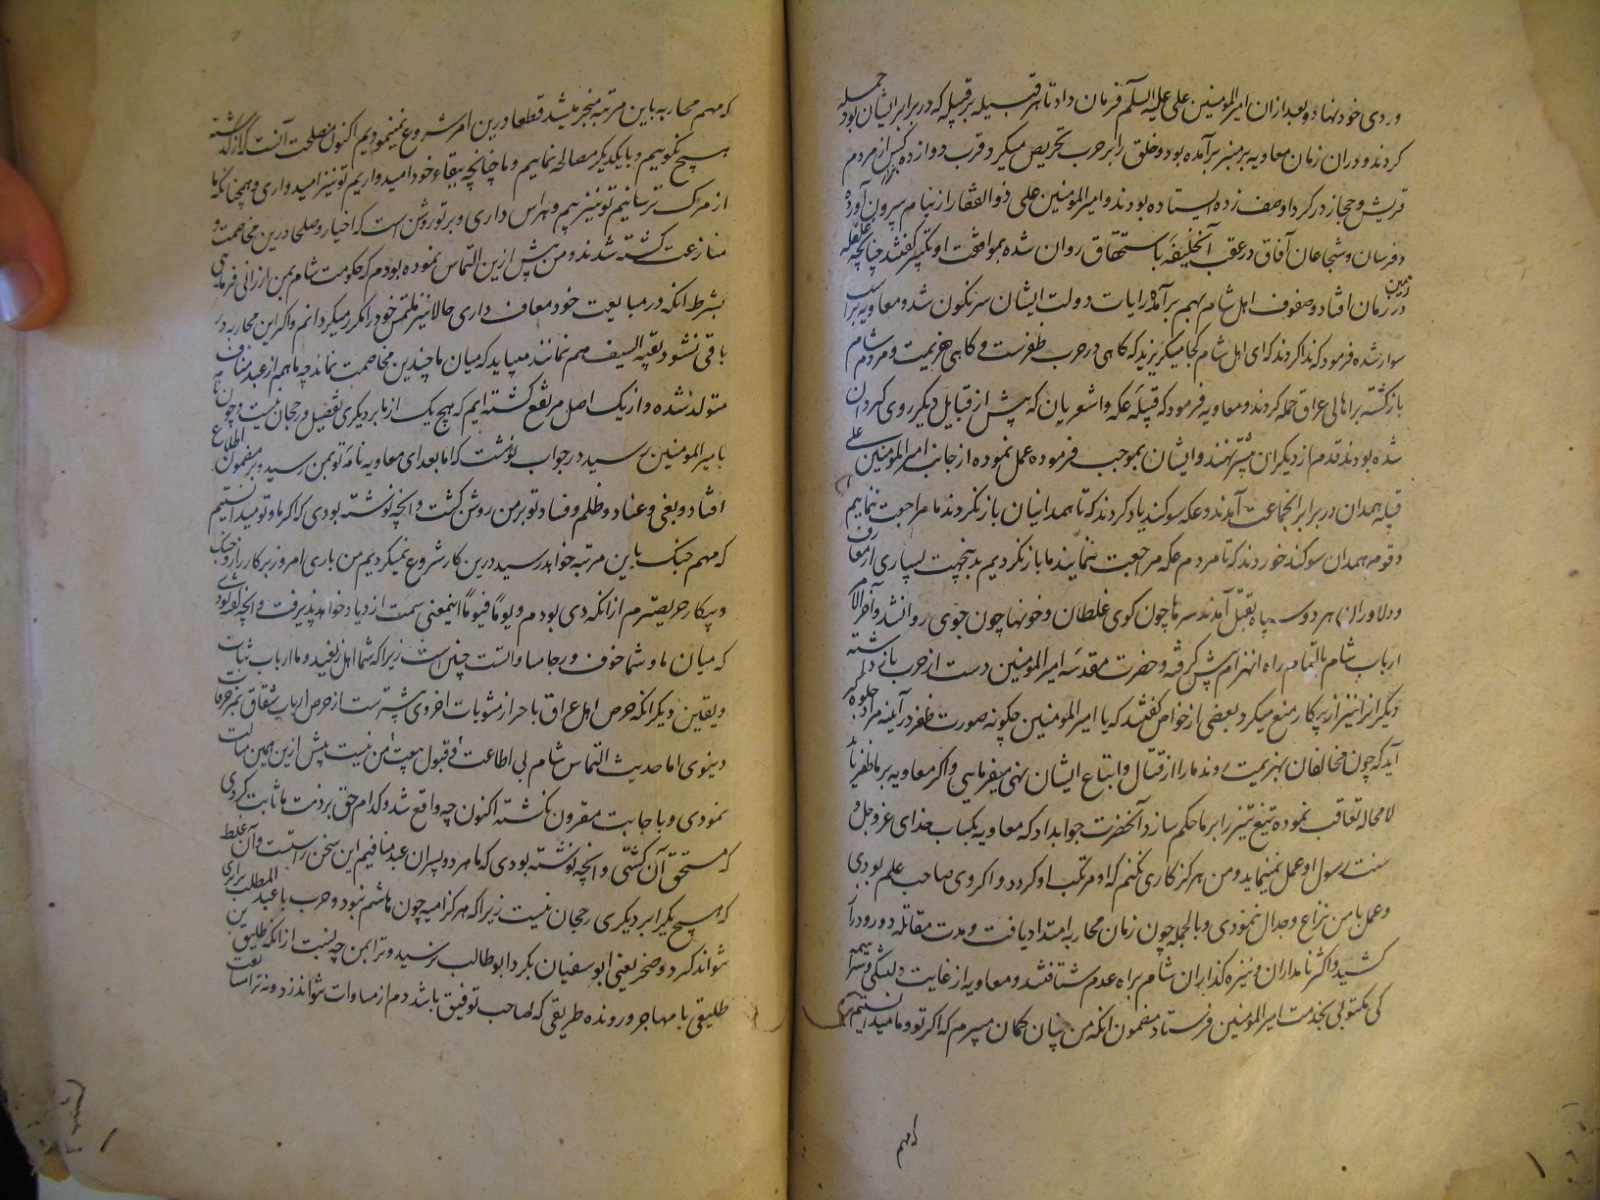 وردی خود نهاد و بعد ازان امیرالمؤمنین علی علیه السلم فرمان داد تا هر قبیله بر قبیله که در برابر ایشان بود حمله
کردند و دران زمان معاویه بر منبر برآمده بود و خلق را بر حرب تحریص میکرد و قرب دوازده کس از مردم
قریش و حجاز در کرد او صف زده ایستاده بودند و امیرالمؤمنین علی ذوالفقار از نیام بیرون آورده
و فرسان و شجاعان آفاق در عقب آن خلیفه باستحقاق روان شده بموافقت او تکبیر کفتند چنانچه غلغله
در زمین زمان افتاد و صفوف اهل شام بهم برآمده رایات دولت ایشان سرنکون شد و معاویه بر اسب
سوار شده فرمود که ندا کردند که ای اهل شام کجا میکریزید که کاهی در حرب ظفرست و کاهی هزیمت و مردم شام
بازکشته بر اهالی عراق حمله کردند و معاویه فرمود که قبیله عکه و اشعریان که پیش از قبایل دیکر روی کردان
شده بودند قدم از دیکران پیشتر نهند و ایشان بموجب فرموده عمل نموده از جانب امیرالمؤمنین علی
قبیله همدان در برابر انجماعت آمدند و عکه سوکند یاد کردند که تا همدانیان بازنکردند ما مراجعت ننماییم
و قوم همدان سوکند خوردند که تا مردم عکه مراجعت ننمایند ما بازنکردیم بدینجهت بسیاری از معارف
و دلاوران هر دو سپاه بقتل آمدند سرها چون کوی غلطان و خونها چون جوی روانشد و آخرالامر
ارباب شام بالتمام راه انهزام پیش کرفته و حضرت مقدسه امیرالمؤمنین دست از حرب باز داشته
دیکرانرا نیز از پیکار منع میکرد بعضی از خواص کفتند که یا امیرالمؤمنین چکونه صورت ظفر در آینه مراد جلوه کر
آید که چون مخالفان بهزیمت روند ما را از قتال و اتباع ایشان نهی میفرمایی و اکر معاویه بر ما ظفر یابد
لامحاله تعاقب نموده تیغ تیز را بر ما حکم سازد آنحضرت جواب داد که معاویه بکتاب خدای عزوجل و
سنت رسول او عمل نمینماید و من هرکز کاری نکنم که او مرتکب او کردد و اکر وی صاحب علم بودی
و عمل با من نزاع و جدال ننمودی و بالجمله چون زمان محاربه امتداد یافت و مدت مقاتله دور و دراز
کشید و اکثر نامداران و نیزه کذاران شام براه عدم شتافتند و معاویه از غایت دلتنکی و سراسیمه
کی مکتوبی بخدمت امیرالمؤمنین فرستاد مضمون انکه من چنان کمان میبرم که اکر تو و ما میدانستیم
که مهم
که مهم محاربه باین مرتبه منجر میشد قطعا درین امر شروع نمینمودیم اکنون مصلحت آنست که از کذشته
هیچ نکوییم و با یکدیکر مصالحه نماییم و ما چنانچه ببقاء خود امیدواریم تو نیز امیدواری و همچنانکه ما
از مرک ترسانیم تو نیز بیم و هراس داری و بر تو روشن است که اخیار و صلحا درین مخاصمت و
منازعت کشته شدند و من پیش ازین التماس نموده بودم که حکومت شام بمن ارزانی فرمایی
بشرط انکه در مبایعت خود معاف داری حالا نیز ملتمس خود را مکرر میکردانم و اکر این محاربه در
باقی نشود بقیه السیف هم نمانند میباید که میان ما چندین مخاصمت نماند چه ما هم از عبد مناف
متولد شده و از یک اصل مرتفع کشته ایم که هیچ یک از ما بر دیکری تفضیل و رجحان نیست و چون نامه
بامیرالمؤمنین رسید در جواب نوشت که اما بعد ای معاویه نامه تو بمن رسید و بر مضمون اطلاع
افتاد و بغی و عناد و ظلم و فساد تو بر من روشن کشت و انچه نوشته بودی که اکر ما و تو میدانستیم
که مهم جنک باین مرتبه خواهد رسید درین کار شروع نمیکردیم من باری امروز بر کارزار و جنک
و پیکار حریصترم از انکه دی بودم و یوما فیوما اینمعنی سمت ازدیاد خواهد پذیرفت و انچه کفته بودی
که میان ما و شما خوف و رجا مساواتست چنین است زیرا که شما اهل ریبید و ما ارباب ثبات
و یقین و دیکر انکه حرص اهل عراق باحراز مثوبات اخروی بیشترست از حرص ارباب شقاق بمزخرفات
دنیوی اما حدیث التماس شام بی اطاعت و قبول بیعت من نیست پیش ازین همین مسالت
نمودی و باجابت مقرون نکشته اکنون چه واقع شد و کدام حق بر ذمت ما ثابت کردی
که مستحق آن کشتی و انچه نوشته بودی که ما هر دو پسران عبد منافیم این سخن راست و آن غلط
که هیچ یکیرا بر دیکری رجحان نیست زیرا که هرکز امیه چون هاشم نبود و حرب با عبدالمطلب برابری
نتواند کرد و صخر یعنی ابوسفیان بکرد ابوطالب نرسید و ترا بمن چه نسبت از انکه طلیق بن
طلیقی با مهاجر و رونده طریقی که صاحب توفیق باشد دم از مساوات نتواند زد و نه ترا سابقت